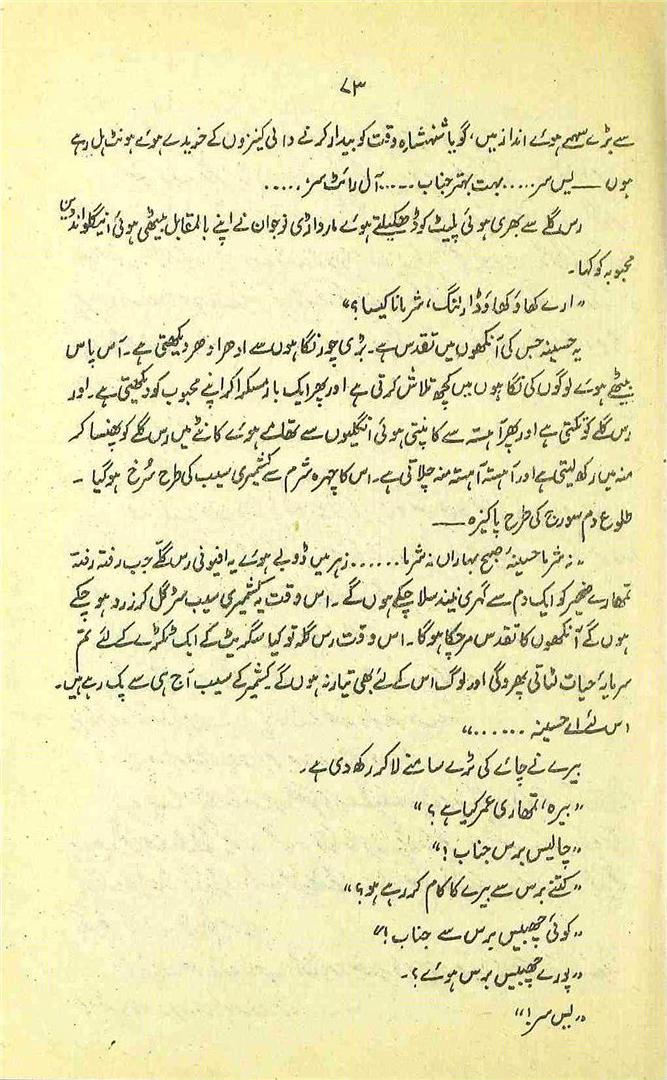 ۷۳
سے بڑے سہمے ہوئے انداز میں، گویا شہنشاہِ وقت کو بیدار کرنے والی کنیزوں کے خریدے ہوئے ہونٹ ہل رہے
ہوں ــــ یس سر..... بہت بہتر جناب ..... آل رائٹ سر.....
رس گلے سے بھری ہوئی پلیٹ کو ڈھکیلتے ہوئے مارواڑی نوجوان نے اپنے بالمقابل بیٹھی ہوئی اینگلو انڈین
محبوبہ کو کہا۔
"ارے کھاؤ کھاؤ ڈارلنگ، شرمانا کیسا؟"
یہ حسینہ جس کی آنکھوں میں تقدس ہے۔ بڑی چور نگاہوں سے ادھر ادھر دیکھتی ہے۔ آس پاس
بیٹھے ہوئے لوگوں کی نگاہوں میں کچھ تلاش کرتی ہے اور پھر ایک بار مسکرا کر اپنے محبوب کو دیکھتی ہے۔ اور
رس گلے کو تکتی ہے اور پھر آہستہ سے کانپتی ہوئی انگلیوں سے تھامے ہوئے کانٹے میں رس گلے کو پھنسا کر
منہ میں رکھ لیتی ہے اور آہستہ آہستہ منہ چلاتی ہے۔ اس کا چہرہ شرم سے کشمیری سیب کی طرح سُرخ ہو گیا۔
طلوع دم سورج کی طرح پاکیزہ ــــ
"نہ شرما حسینۂ صبح بہاراں نہ شرما...... زہر میں ڈوبے ہوئے یہ افیونی رس گلّے جب رفتہ رفتہ
تمھارے ضمیر کو ایک دم سے گہری نیند سلا چکے ہوں گے۔ اس وقت یہ کشمیری سیب سڑ گل کر زرد ہو چکے
ہوں گے آنکھوں کا تقدس مر چکا ہوگا۔ اس وقت رس گلہ تو کیا سگریٹ کے ایک ٹکڑے کے لئے تم
سرمایۂ حیات لٹاتی پھروگی اور لوگ اس کے لئے بھی تیار نہ ہوں گے کشمیر کے سیب آج ہی سے پک رہے ہیں۔
اس لئے اے حسینہ ......"
بیرے نے چائے کی ٹرے سامنے لا کر رکھ دی ہے۔
"بیرہ، تمھاری عمر کیا ہے؟"
"چالیس برس جناب!"
"کتنے برس سے بیرے کا کام کر رہے ہو؟"
"کوئی چھبیس برس سے جناب!"
"پورے چھبیس برس ہوئے؟۔
"یس سر!"